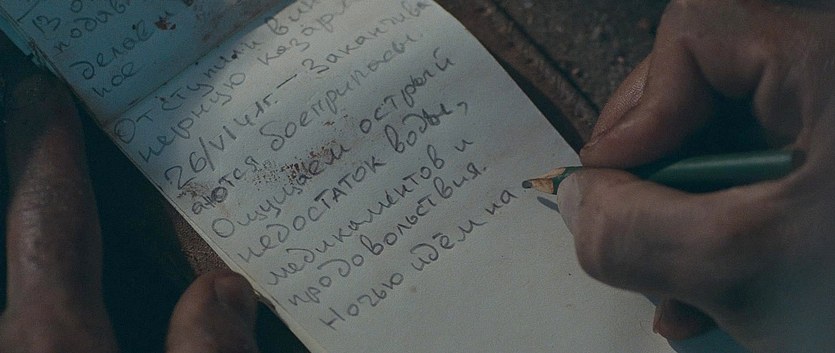 13 о
подав
делаем
ное
Отступили в ин
нерную казар
26/VI 41г. – Заканчива
ются боеприпасы.
Ощущаем острый
недостаток воды,
медикаментов и
продовольствия.
Ночью идём на